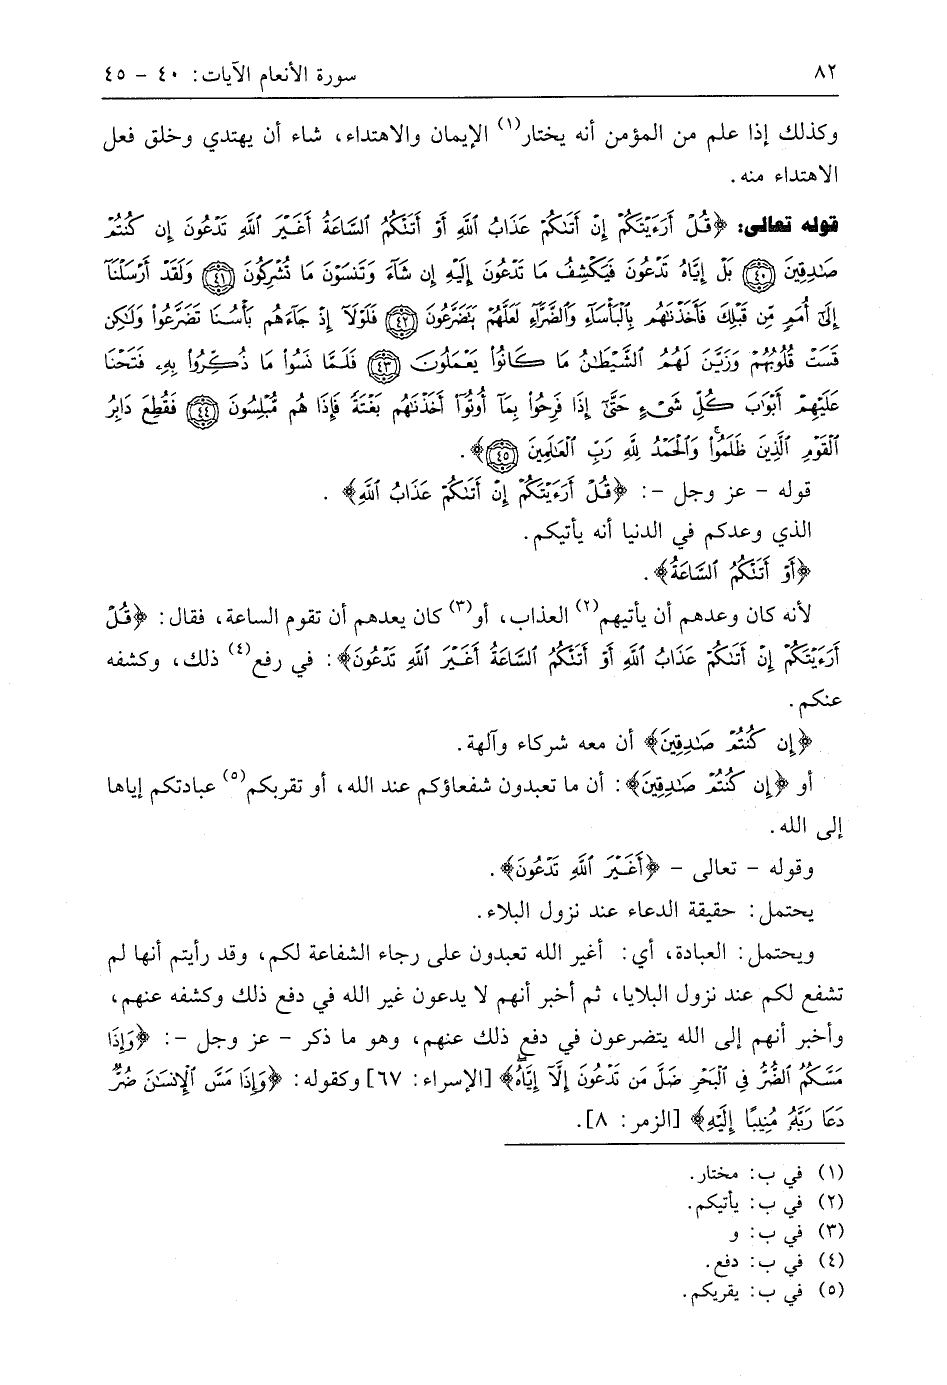 ٨٢ سورة الأنعام الآيات: ٤٠ - ٤٥
وكذلك إذا علم من المؤمن أنه يختار(١) الإيمان والاهتداء، شاء أن يهتدي وخلق فعل
الاهتداء منه.
قوله تعالى: ﴿قُلْ أَرَءَيْتَكُمْ إِنْ أَتَىٰكُمْ عَذَابُ ٱللَّهِ أَوْ أَتَتْكُمُ ٱلسَّاعَةُ أَغَيْرَ ٱللَّهِ تَدْعُونَ إِن كُنتُمْ
صَٰدِقِينَ ۝٤٠ بَلْ إِيَّاهُ تَدْعُونَ فَيَكْشِفُ مَا تَدْعُونَ إِلَيْهِ إِن شَآءَ وَتَنسَوْنَ مَا تُشْرِكُونَ ۝٤١ وَلَقَدْ أَرْسَلْنَآ
إِلَىٰٓ أُمَمٍ مِّن قَبْلِكَ فَأَخَذْنَٰهُم بِٱلْبَأْسَآءِ وَٱلضَّرَّآءِ لَعَلَّهُمْ يَتَضَرَّعُونَ ۝٤٢ فَلَوْلَآ إِذْ جَآءَهُم بَأْسُنَا تَضَرَّعُوا۟ وَلَٰكِن
قَسَتْ قُلُوبُهُمْ وَزَيَّنَ لَهُمُ ٱلشَّيْطَٰنُ مَا كَانُوا۟ يَعْمَلُونَ ۝٤٣ فَلَمَّا نَسُوا۟ مَا ذُكِّرُوا۟ بِهِۦ فَتَحْنَا
عَلَيْهِمْ أَبْوَٰبَ كُلِّ شَىْءٍ حَتَّىٰٓ إِذَا فَرِحُوا۟ بِمَآ أُوتُوٓا۟ أَخَذْنَٰهُم بَغْتَةً فَإِذَا هُم مُّبْلِسُونَ ۝٤٤ فَقُطِعَ دَابِرُ
ٱلْقَوْمِ ٱلَّذِينَ ظَلَمُوا۟ ۚ وَٱلْحَمْدُ لِلَّهِ رَبِّ ٱلْعَٰلَمِينَ ۝٤٥﴾.
قوله - عز وجل -: ﴿قُلْ أَرَءَيْتَكُمْ إِنْ أَتَىٰكُمْ عَذَابُ ٱللَّهِ﴾.
الذي وعدكم في الدنيا أنه يأتيكم.
﴿أَوْ أَتَتْكُمُ ٱلسَّاعَةُ﴾.
لأنه كان وعدهم أن يأتيهم(٢) العذاب، أو(٣) كان يعدهم أن تقوم الساعة، فقال: ﴿قُلْ
أَرَءَيْتَكُمْ إِنْ أَتَىٰكُمْ عَذَابُ ٱللَّهِ أَوْ أَتَتْكُمُ ٱلسَّاعَةُ أَغَيْرَ ٱللَّهِ تَدْعُونَ﴾: في رفع(٤) ذلك، وكشفه
عنكم.
﴿إِن كُنتُمْ صَٰدِقِينَ﴾ أن معه شركاء وآلهة.
أو ﴿إِن كُنتُمْ صَٰدِقِينَ﴾: أن ما تعبدون شفعاؤكم عند الله، أو تقربكم(٥) عبادتكم إياها
إلى الله.
وقوله - تعالى - ﴿أَغَيْرَ ٱللَّهِ تَدْعُونَ﴾.
يحتمل: حقيقة الدعاء عند نزول البلاء.
ويحتمل: العبادة، أي: أغير الله تعبدون على رجاء الشفاعة لكم، وقد رأيتم أنها لم
تشفع لكم عند نزول البلايا، ثم أخبر أنهم لا يدعون غير الله في دفع ذلك وكشفه عنهم،
وأخبر أنهم إلى الله يتضرعون في دفع ذلك عنهم، وهو ما ذكر - عز وجل -: ﴿وَإِذَا
مَسَّكُمُ ٱلضُّرُّ فِى ٱلْبَحْرِ ضَلَّ مَن تَدْعُونَ إِلَّآ إِيَّاهُ ۖ﴾ [الإسراء: ٦٧] وكقوله: ﴿وَإِذَا مَسَّ ٱلْإِنسَٰنَ ضُرٌّ
دَعَا رَبَّهُۥ مُنِيبًا إِلَيْهِ﴾ [الزمر: ٨].
(١) في ب: مختار.
(٢) في ب: يأتيكم.
(٣) في ب: و
(٤) في ب: دفع.
(٥) في ب: يقربكم.